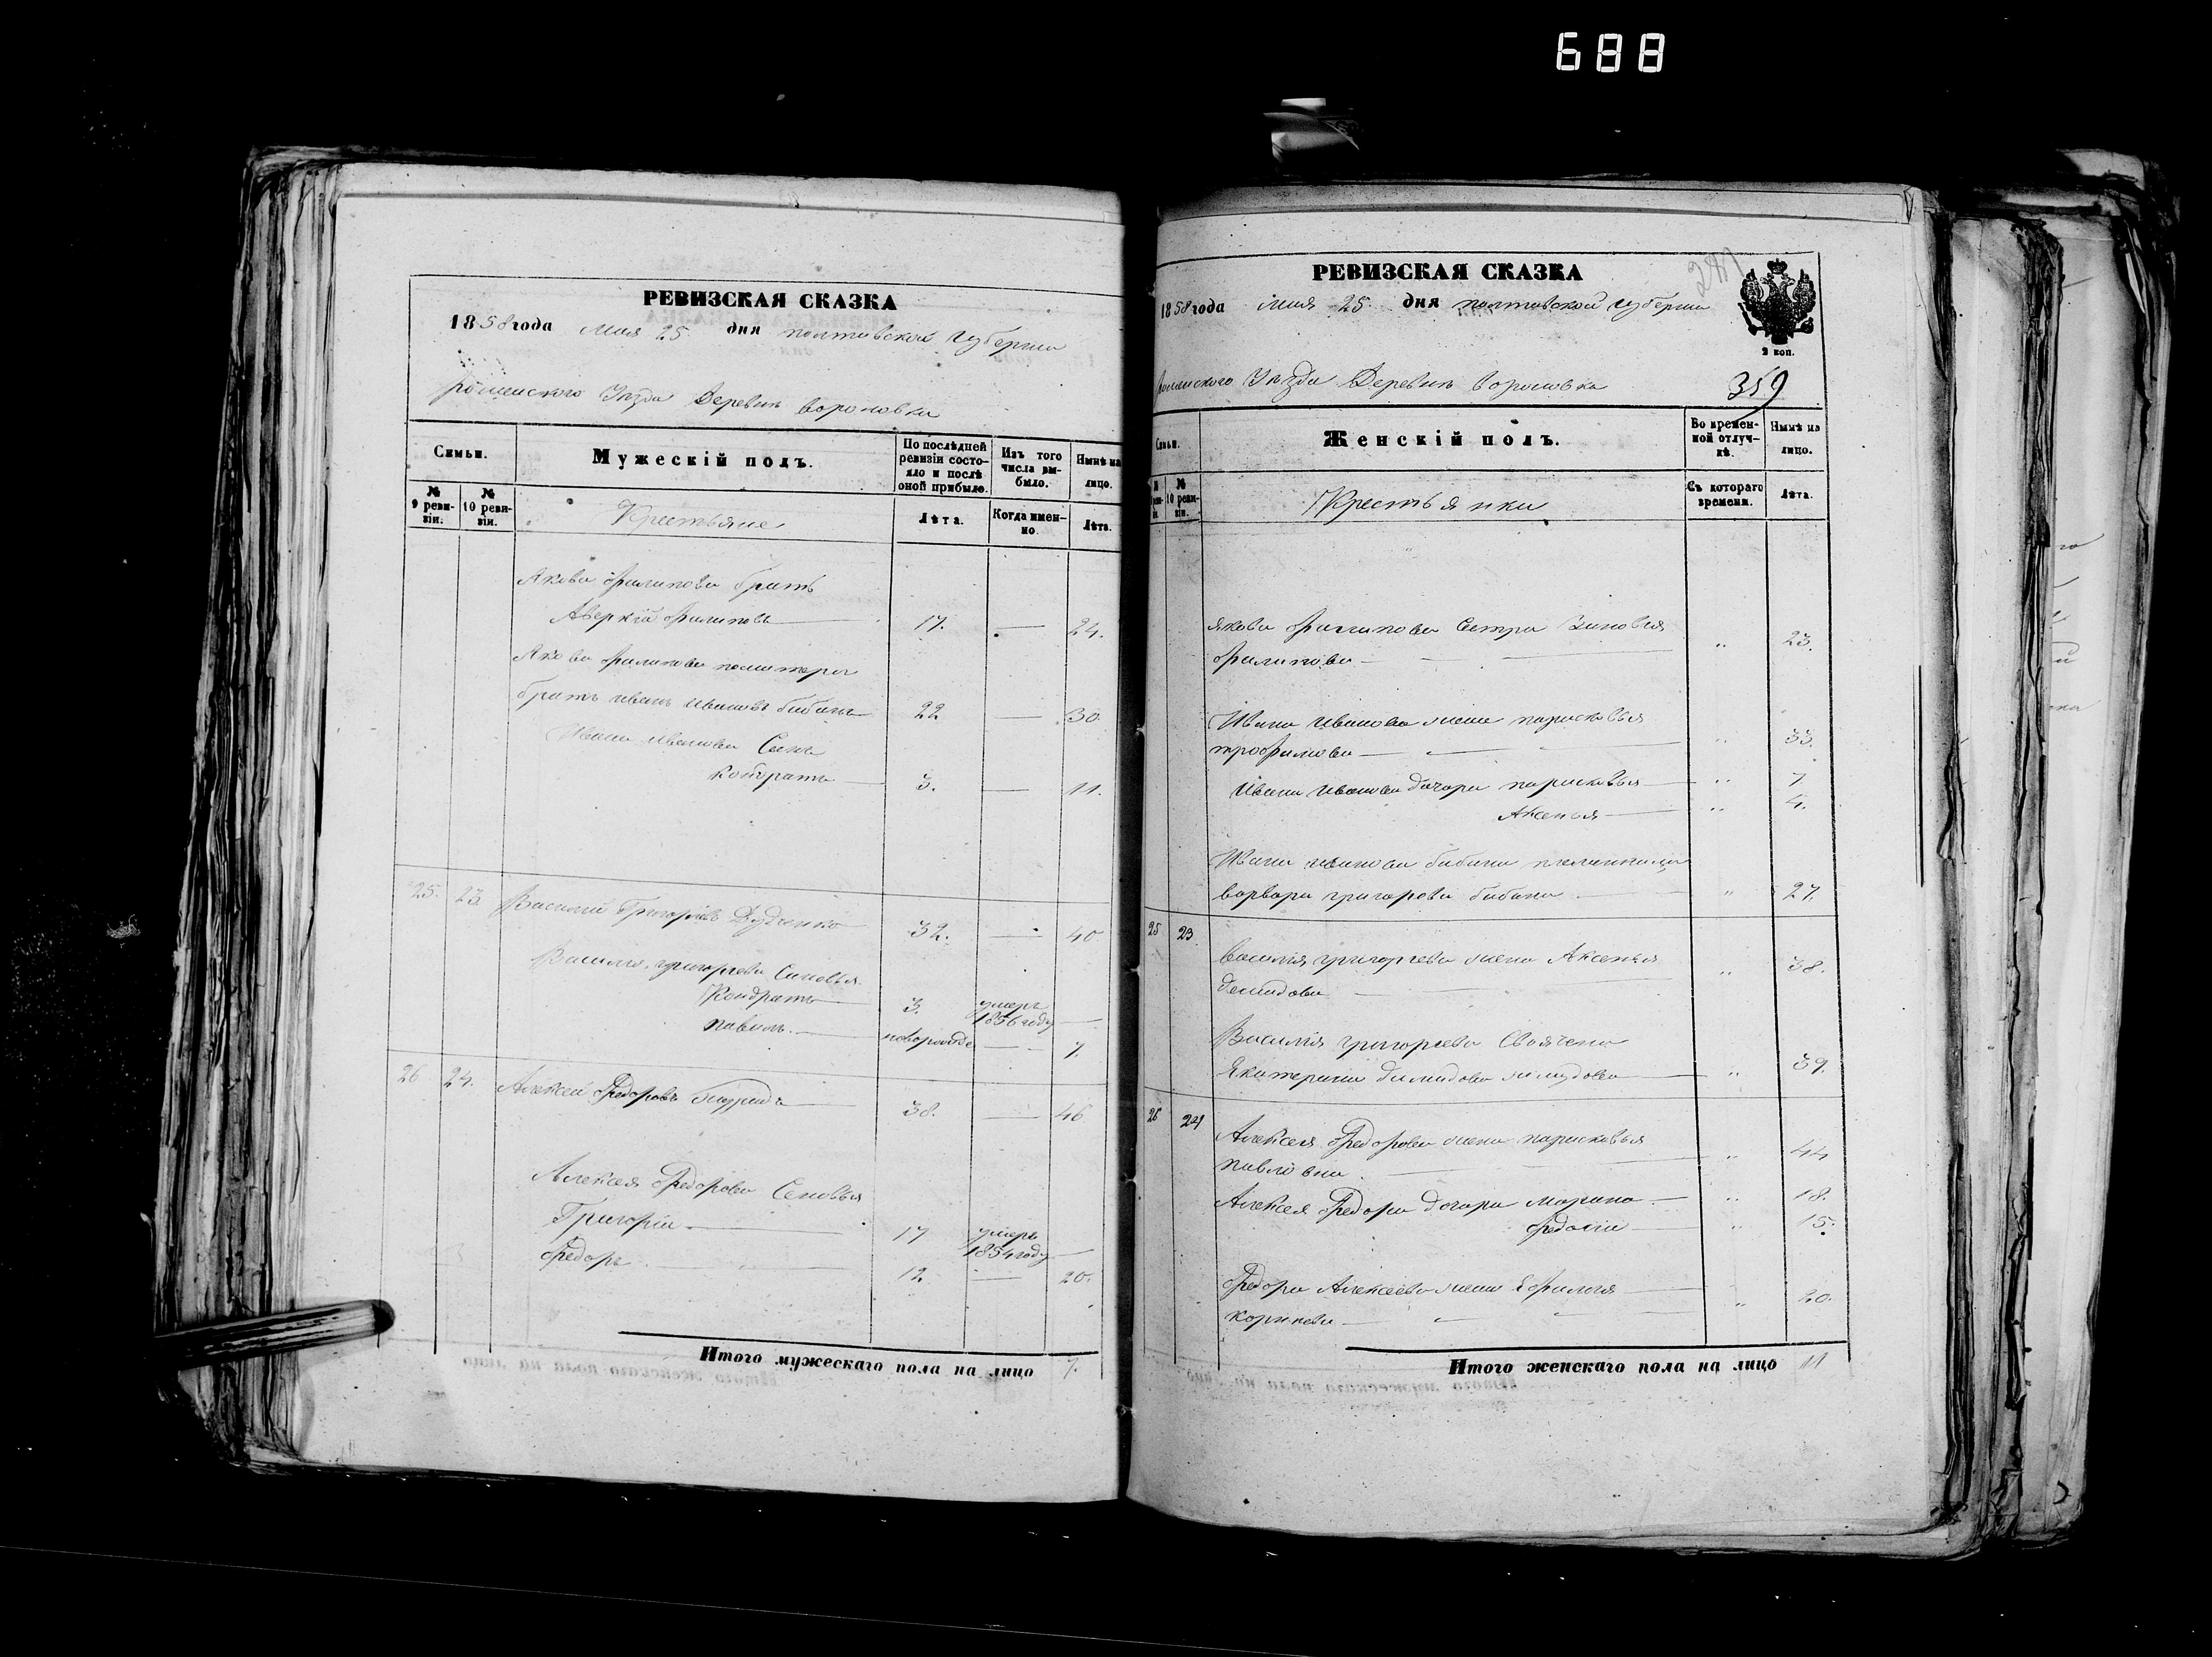 688
РЕВИЗСКАЯ СКАЗКА
1858 года Мая 25 дня полтавской губернии
роменского Уезда Деревни вороновки
Семьи.
Мужескій полъ.
По послѣдней ревизіи состояло и послѣ оной прибыло.
Изъ того числа выбыло.
Нынѣ на лицо.
№ 9 ревизіи.
№ 10 ревизіи.
Крестьяне
Лѣта.
Когда именно.
Лѣта.
Якова Филипова братъ
Аверкій Филиповъ 17. — 24.
Якова Филипова
братъ иванъ Ивановъ бабакъ 22 — 30.
Ивана иванова Сынъ
Кондратъ 3. — 11.
25. 23. Василий Григорьевъ Дудченко 32. — 40
Василия григорьева Сыновья
Кондратъ 3. умеръ 1856 году —
павилъ новорожде — 7.
26 24. Алексей Федоровъ 38. — 46
Алексея Федорова Сыновья
Григорій 17 умеръ 1854 году —
Федоръ 12. — 20.
Итого мужескаго пола на лицо 7.
РЕВИЗСКАЯ СКАЗКА
1858 года Мая 25 дня полтавской губернии
2 коп.
роменского Уезда Деревни вороновка 359
Семьи.
Женскій полъ.
Во временной отлучкѣ.
Нынѣ на лицо.
№ 10 ревизіи.
Крестьянки
Съ котораго времени.
Лѣта.
якова Филипова Сестра Зиновия
Филипова — " 23.
Ивана иванова жена парасковья
трофимова — " 33.
Ивана иванова дочери парасковья — " 7
Аксенья — " 4.
Ивана иванова бабака племянница
варвара григорова бабака " 27.
25 23. Василия григорьева жена Аксенья
демидова — " 38.
Василия григорьева Своячена
Екатерина демидова — " 39.
26 24 Алексея Федорова жена парасковья
павловна — " 44
Алексея Федора дочери Марина — " 18.
Федосия — " 15.
Федора Алексеева жена Ефимия
корнѣева — " 20.
Итого женскаго пола на лицо 11